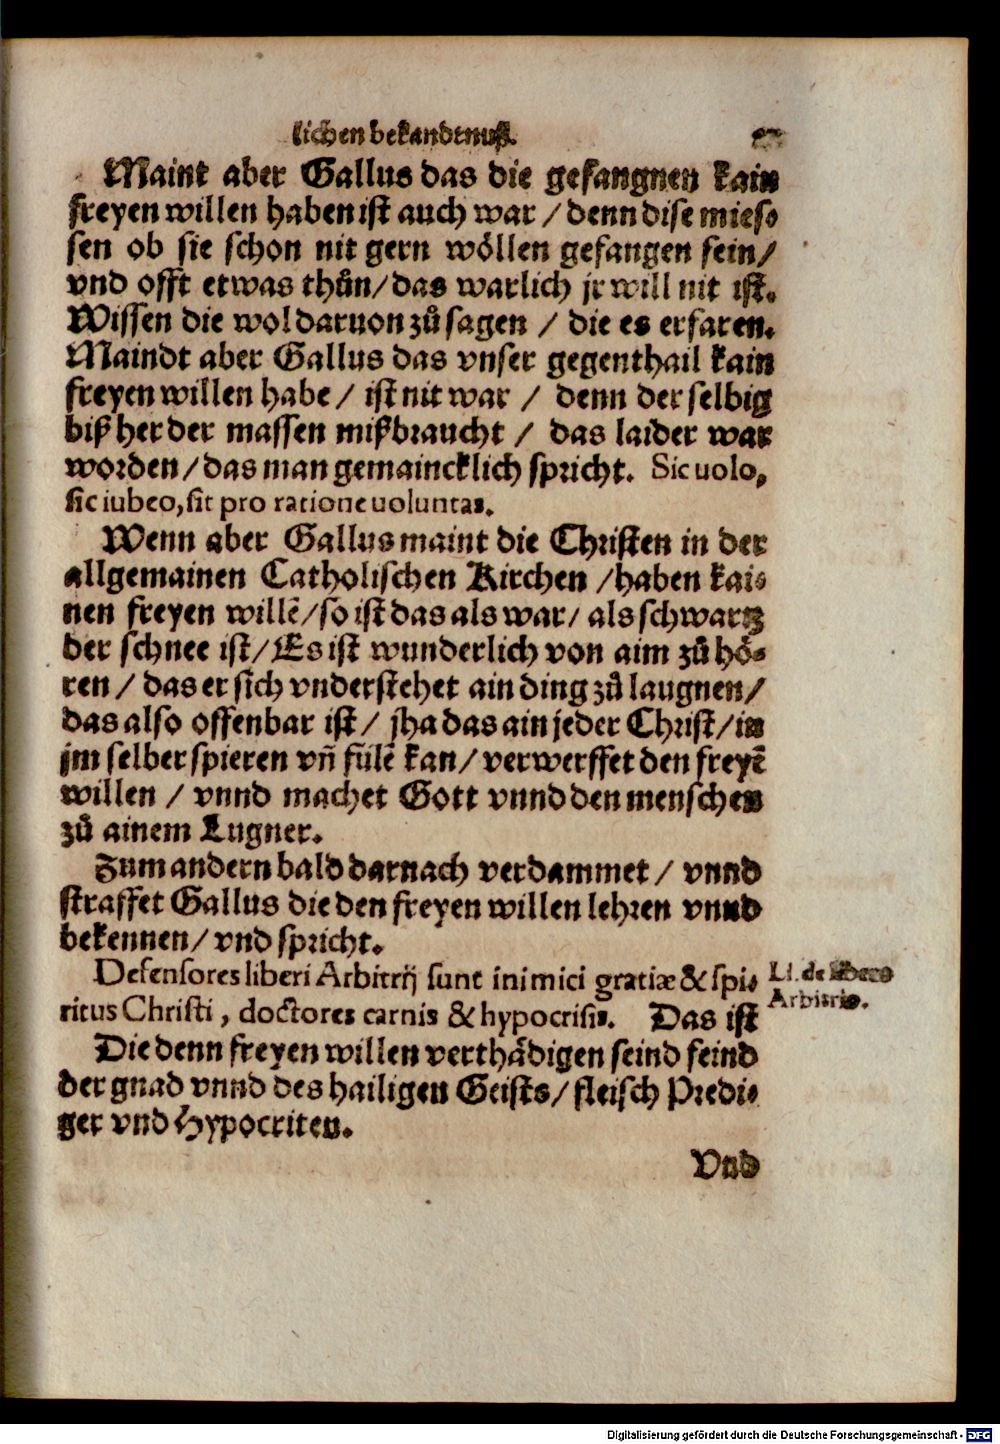 lichen bekandtnuß.
Maint aber Gallus das die gefangnen kain
freyen willen haben ist auch war / denn dise mies⸗
sen ob sie schon nit gern wöllen gefangen sein/
vnd offt etwas thůn/das warlich jr will nit ist.
Wissen die wol daruon zů sagen / die es erfaren.
Maindt aber Gallus das vnser gegenthail kain
freyen willen habe / ist nit war / denn der selbig
biß her der massen mißbraucht / das laider war
worden/das man gemaincklich spricht. Sic uolo,
sic iubeo, sit pro ratione uoluntas.
Wenn aber Gallus maint die Christen in der
allgemainen Catholischen Kirchen /haben kai⸗
nen freyen willẽ/so ist das als war/ als schwartz
der schnee ist/Es ist wunderlich von aim zů hö⸗
ren / das er sich vnderstehet ain ding zů laugnen/
das also offenbar ist/ jha das ain jeder Christ/in
jm selber spieren vñ fülẽ kan/ verwerffet den freyẽ
willen / vnnd machet Gott vnnd den menschen
zů ainem Lugner.
Zum andern bald darnach verdammet / vnnd
straffet Gallus die den freyen willen lehren vnnd
bekennen/ vnd spricht.
Defensores liberi Arbitrij sunt inimici gratiæ & spi⸗
ritus Christi, doctores carnis & hypocrisis. Das ist
Li. de libero
Arbitrio.
Die denn freyen willen verthädigen seind feind
der gnad vnnd des hailigen Geists/ fleisch Predi⸗
ger vnd Hypocriten.
Vnd
Digitalisierung gefördert durch die Deutsche Forschungsgemeinschaft - DFG